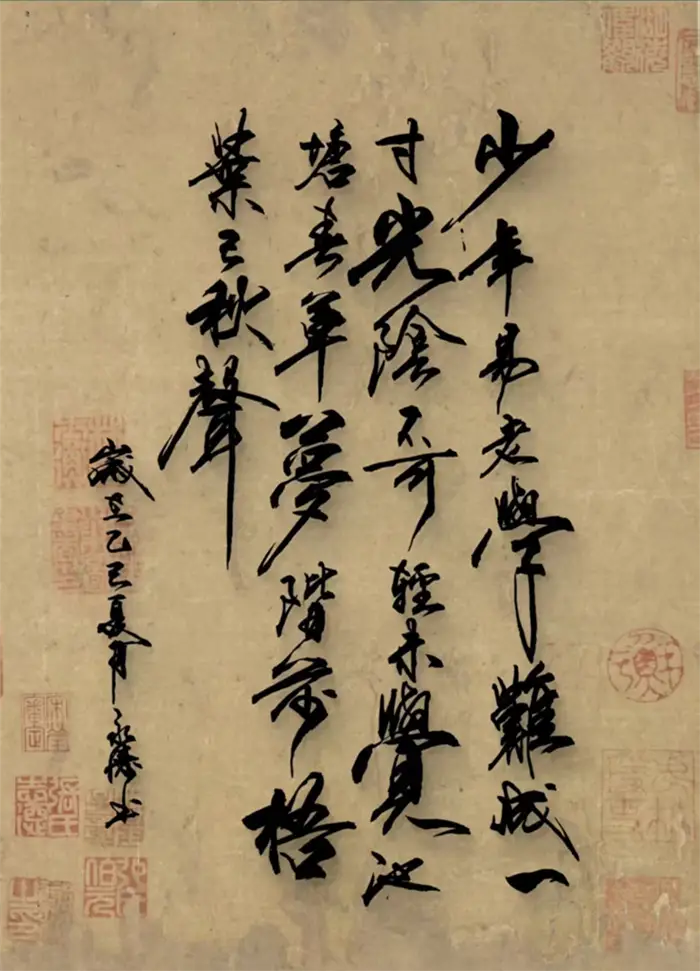 少年易老學難成一
寸光陰不可輕未覺池
塘春草夢階前梧
葉已秋聲
歲在乙巳夏月永书